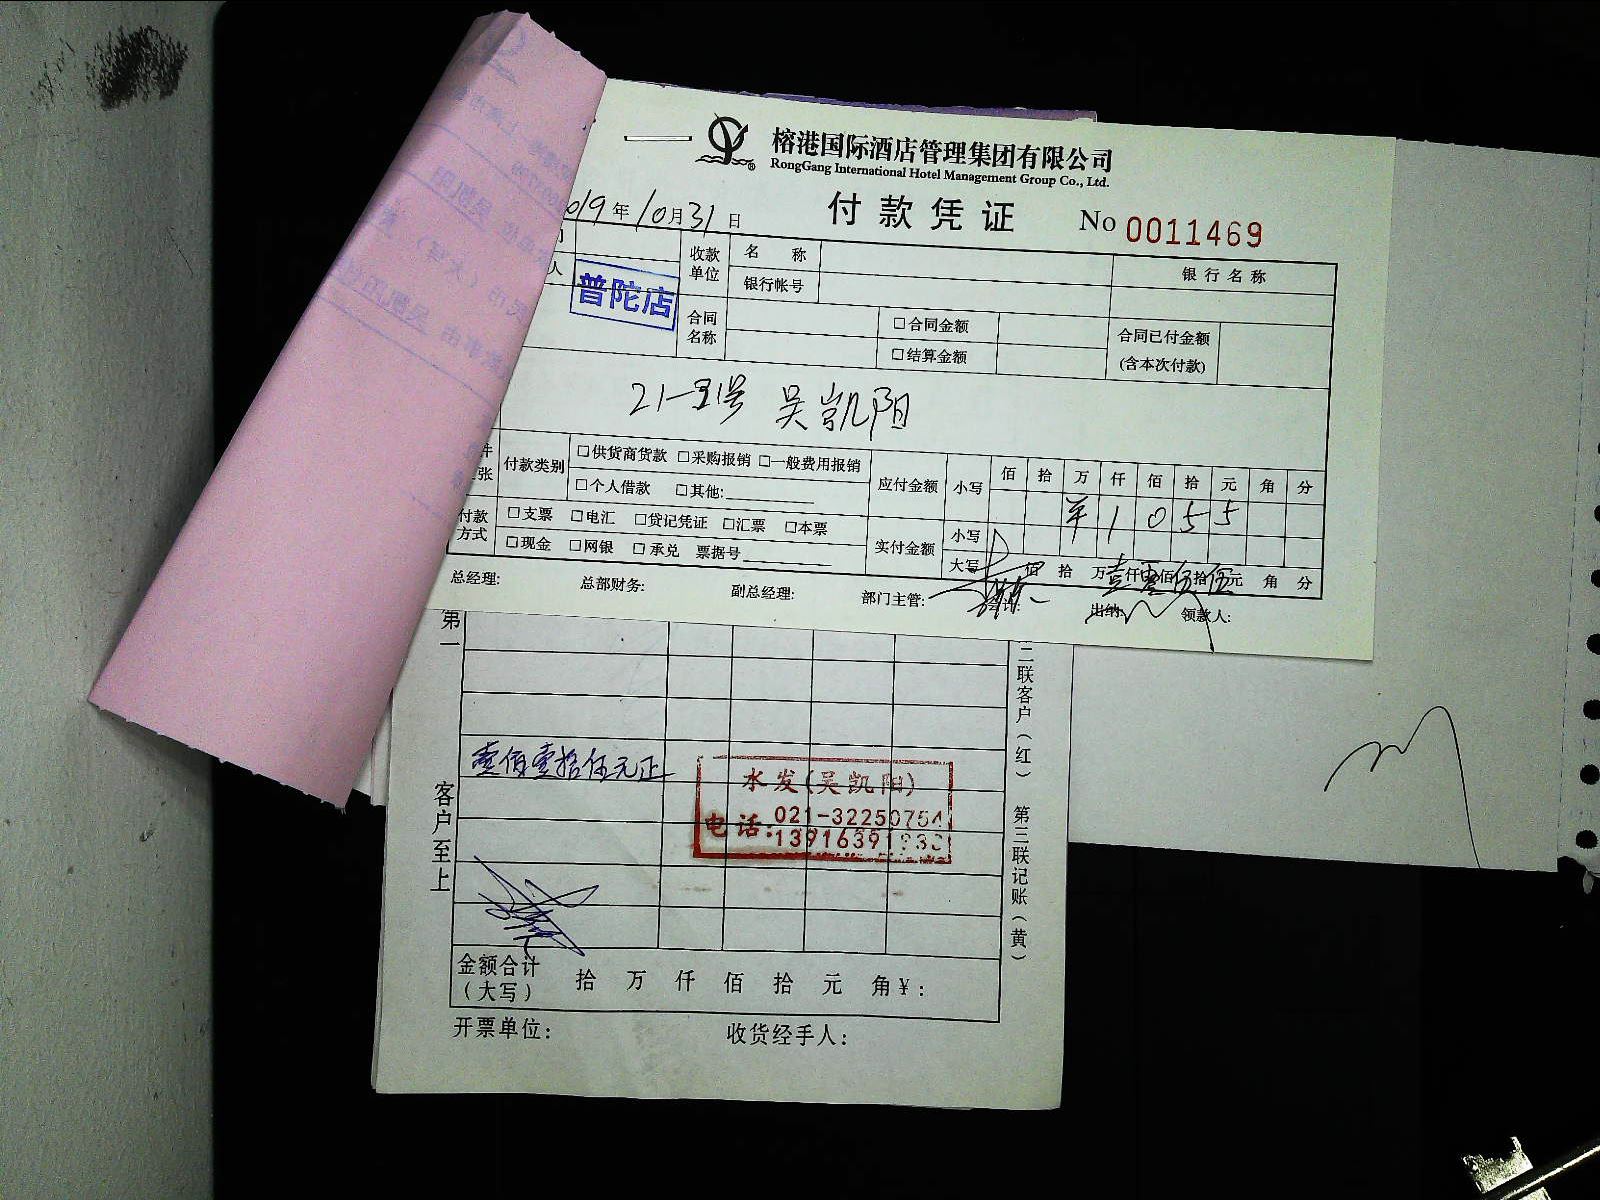 榕港国际酒店管理集团有限公司
RongGang International Hotel Management Group Co., Ltd.
付款凭证
No 0011469
019年10月31日
人
普陀店
收款单位
名称
银行名称
银行帐号
合同名称
□合同金额
□结算金额
合同已付金额
(含本次付款)
吴凯阳
件
张
付款类别
□供货商货款 □采购报销 □一般费用报销
□个人借款 □其他:
应付金额 小写
佰 拾 万 仟 佰 拾 元 角 分
¥ 1 0 5 5
付款方式
□支票 □电汇 □贷记凭证 □汇票 □本票
□现金 □网银 □承兑 票据号
实付金额 小写
大写 佰 拾 万壹仟零佰伍拾伍元 角 分
总经理: 总部财务: 副总经理: 部门主管: 会计: 出纳: 领款人:
第一
二联客户(红) 第三联记账(黄)
壹佰壹拾伍元正
水发(吴凯阳)
电话:021-32250754
客户至上
金额合计
(大写)
拾 万 仟 佰 拾 元 角 ¥:
开票单位: 收货经手人: